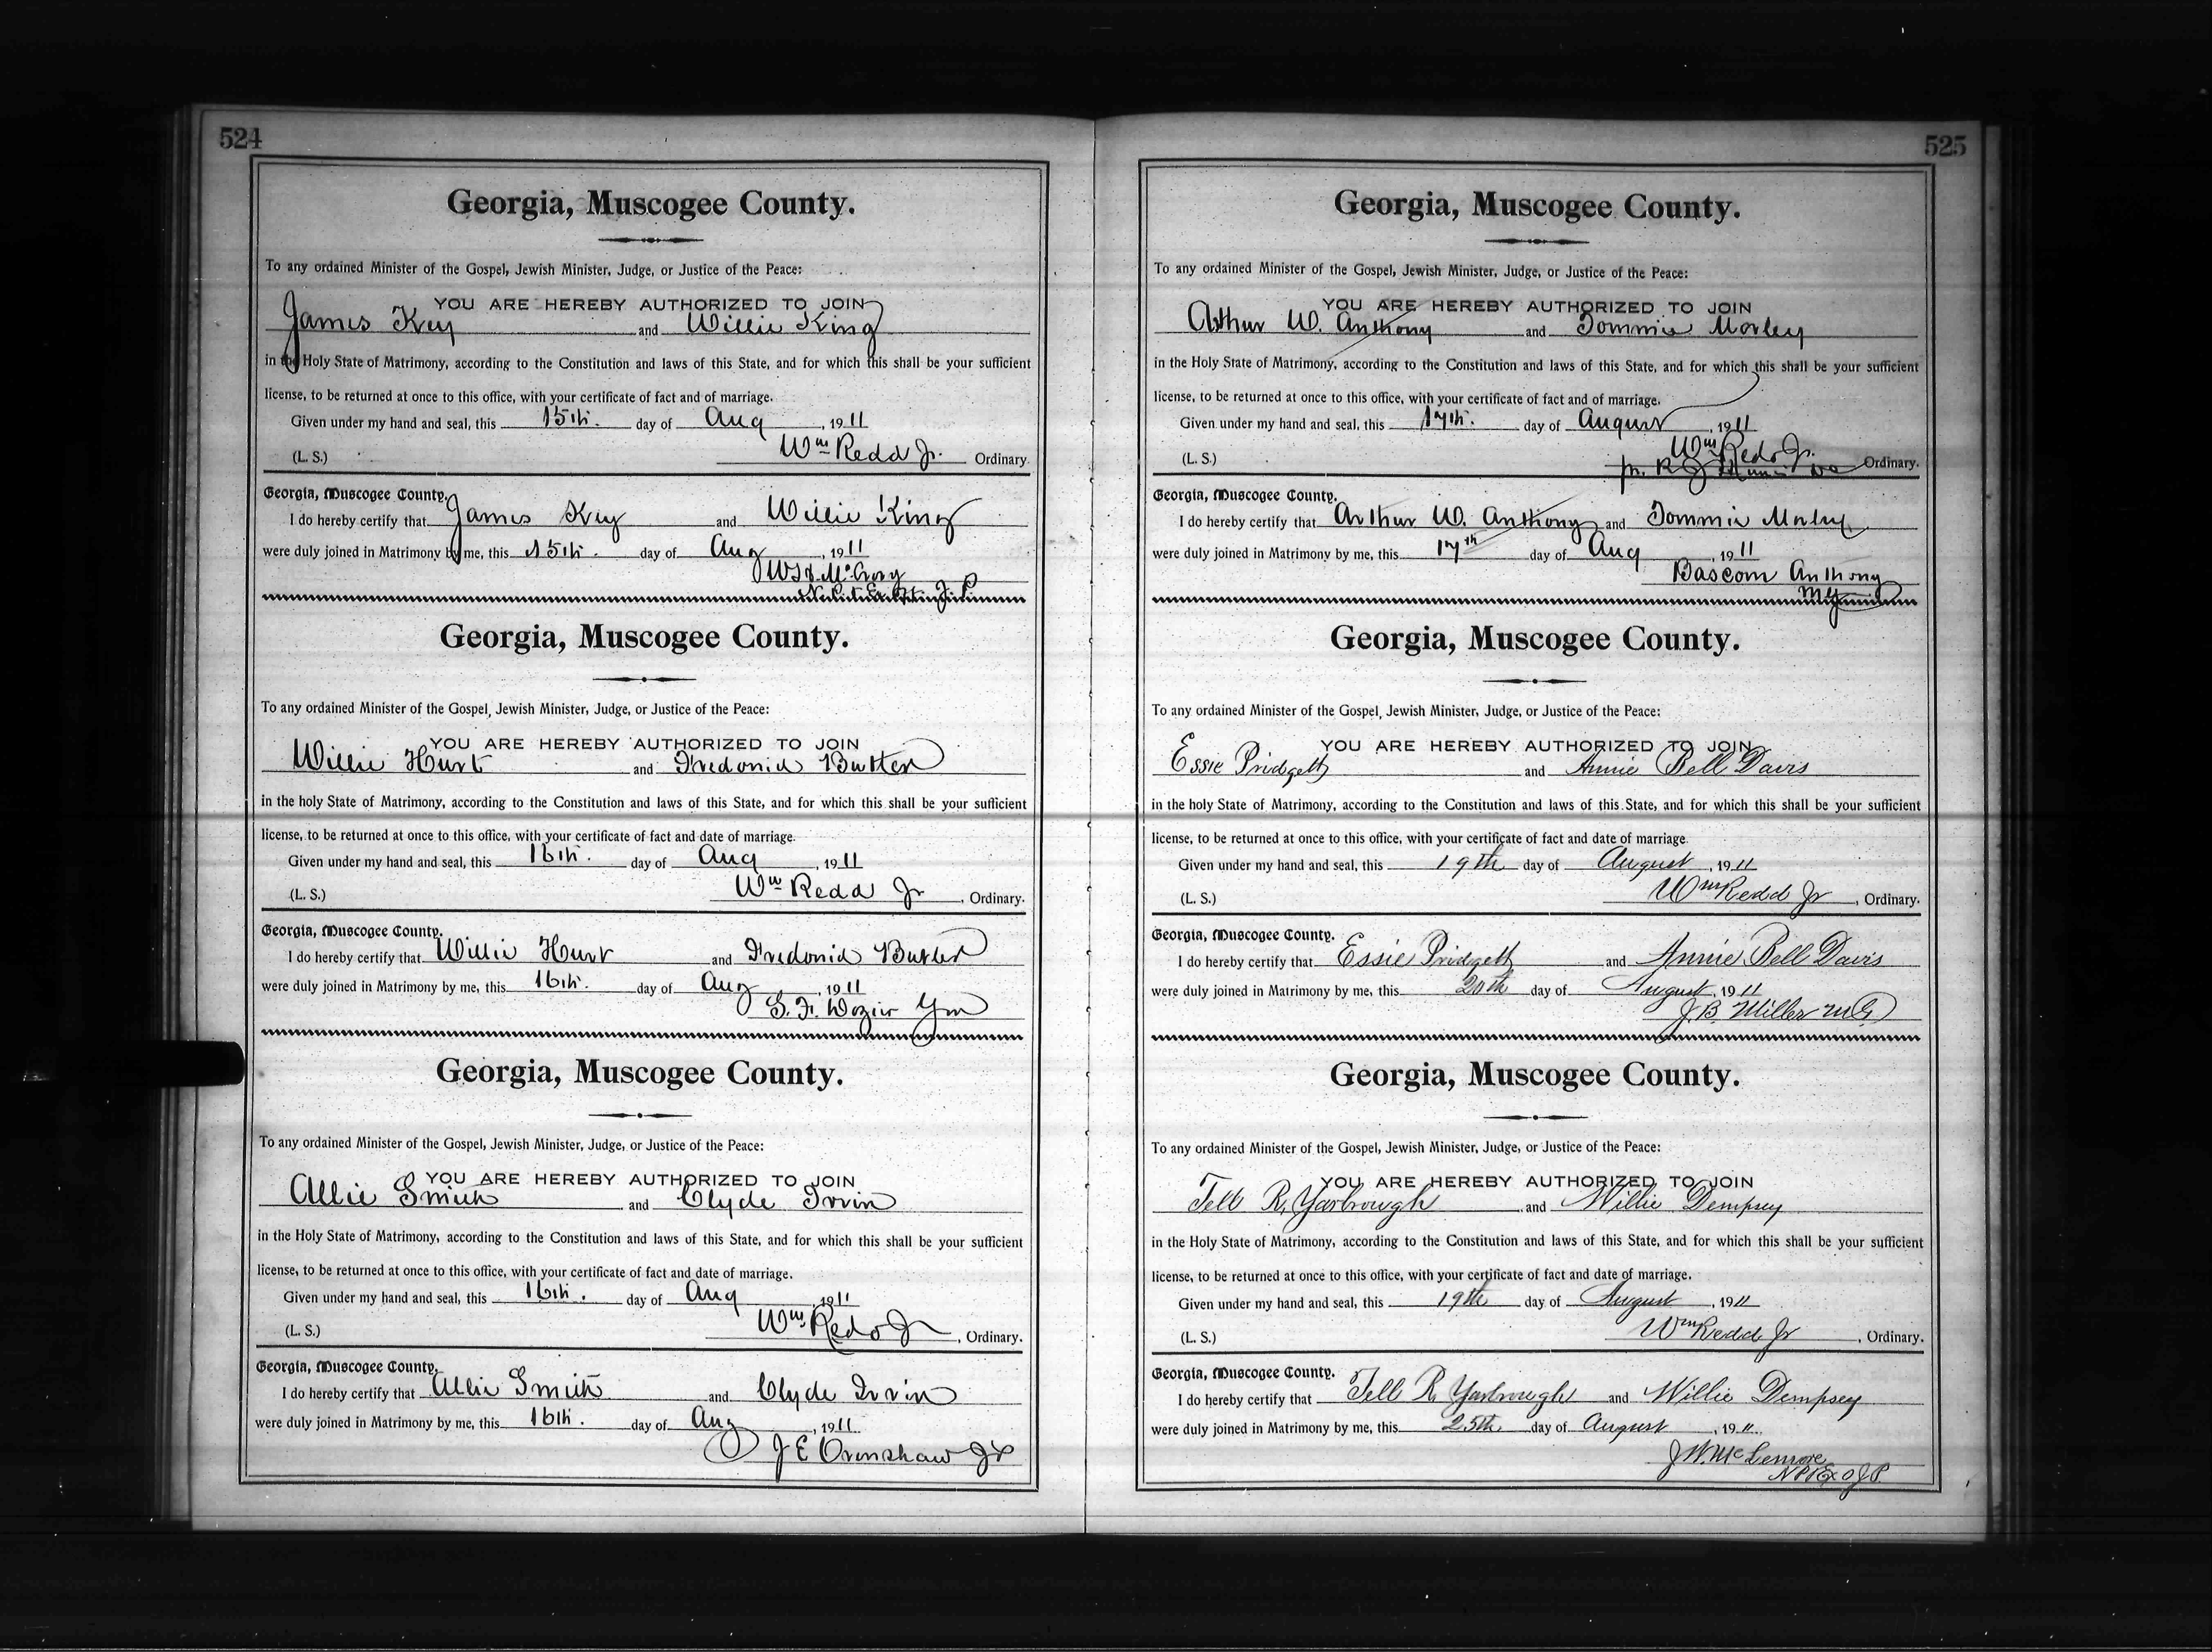 524
Georgia, Muscogee County.
To any ordained Minister of the Gospel, Jewish Minister, Judge, or Justice of the Peace:
YOU ARE HEREBY AUTHORIZED TO JOIN
James Key and Willie King
in the Holy State of Matrimony, according to the Constitution and laws of this State, and for which this shall be your sufficient
license, to be returned at once to this office, with your certificate of fact and of marriage.
Given under my hand and seal, this 15th. day of Aug, 1911
Wm Redd Jr.
(L. S.) Ordinary.
Georgia, Muscogee County.
I do hereby certify that James Key and Willie King
were duly joined in Matrimony by me, this 15th. day of Aug, 1911
McCrory
J. P.
Georgia, Muscogee County.
To any ordained Minister of the Gospel, Jewish Minister, Judge, or Justice of the Peace:
YOU ARE HEREBY AUTHORIZED TO JOIN
Willie Hurt and Fredonia Butler
in the holy State of Matrimony, according to the Constitution and laws of this State, and for which this shall be your sufficient
license, to be returned at once to this office, with your certificate of fact and date of marriage.
Given under my hand and seal, this 16th. day of Aug, 1911
Wm Redd Jr
(L. S.) , Ordinary.
Georgia, Muscogee County.
I do hereby certify that Willie Hurt and Fredonia Butler
were duly joined in Matrimony by me, this 16th. day of Aug, 1911
Dozier
Georgia, Muscogee County.
To any ordained Minister of the Gospel, Jewish Minister, Judge, or Justice of the Peace:
YOU ARE HEREBY AUTHORIZED TO JOIN
Allie Smith and Clyde Irvin
in the Holy State of Matrimony, according to the Constitution and laws of this State, and for which this shall be your sufficient
license, to be returned at once to this office, with your certificate of fact and date of marriage.
Given under my hand and seal, this 16th. day of Aug, 1911
Wm Redd Jr
(L. S.) , Ordinary.
Georgia, Muscogee County.
I do hereby certify that Allie Smith and Clyde Irvin
were duly joined in Matrimony by me, this 16th. day of Aug, 1911
J E
525
Georgia, Muscogee County.
To any ordained Minister of the Gospel, Jewish Minister, Judge, or Justice of the Peace:
YOU ARE HEREBY AUTHORIZED TO JOIN
Arthur W. Anthony and Tommie Morley
in the Holy State of Matrimony, according to the Constitution and laws of this State, and for which this shall be your sufficient
license, to be returned at once to this office, with your certificate of fact and of marriage.
Given under my hand and seal, this 17th. day of August, 1911
Wm Redd Jr.
(L. S.) Ordinary.
Georgia, Muscogee County.
I do hereby certify that Arthur W. Anthony and Tommie Morley
were duly joined in Matrimony by me, this 17th day of Aug, 1911
Bascom Anthony
MG
Georgia, Muscogee County.
To any ordained Minister of the Gospel, Jewish Minister, Judge, or Justice of the Peace:
YOU ARE HEREBY AUTHORIZED TO JOIN
Essie Pridgett and Annie Bell Davis
in the holy State of Matrimony, according to the Constitution and laws of this State, and for which this shall be your sufficient
license, to be returned at once to this office, with your certificate of fact and date of marriage.
Given under my hand and seal, this 19th day of August, 1911
Wm Redd Jr
(L. S.) , Ordinary.
Georgia, Muscogee County.
I do hereby certify that Essie Pridgett and Annie Bell Davis
were duly joined in Matrimony by me, this 20th day of August, 1911
J. B. Miller M G
Georgia, Muscogee County.
To any ordained Minister of the Gospel, Jewish Minister, Judge, or Justice of the Peace:
YOU ARE HEREBY AUTHORIZED TO JOIN
Tell R. Yarbrough and Willie Dempsey
in the Holy State of Matrimony, according to the Constitution and laws of this State, and for which this shall be your sufficient
license, to be returned at once to this office, with your certificate of fact and date of marriage.
Given under my hand and seal, this 19th day of August, 1911
Wm Redd Jr
(L. S.) , Ordinary.
Georgia, Muscogee County.
I do hereby certify that Tell R Yarbrough and Willie Dempsey
were duly joined in Matrimony by me, this 25th day of August, 1911.
J. W. McLemore
NP & Ex O J P.